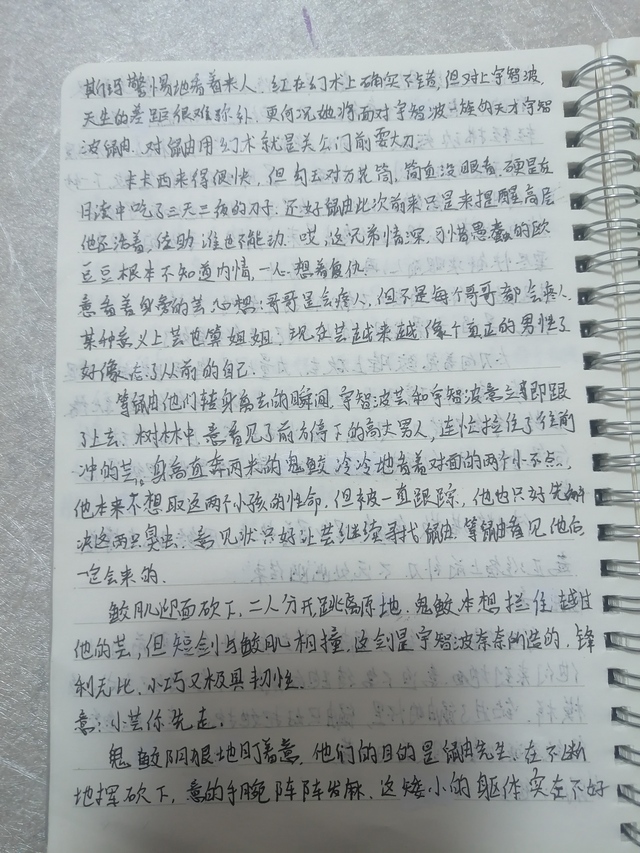 斯玛警惕地看着来人，红在幻术上确实不错，但对上宇智波，
天生的差距很难弥补，更何况她将面对宇智波一族的天才宇智
波鼬。对鼬用幻术就是关公门前耍大刀。
卡卡西来得很快，但勾玉对万花筒，简直没眼看，硬是在
月读中吃了三天三夜的刀子。还好鼬此次前来只是来提醒高层
他还活着，佐助谁也不能动。哎，这兄弟情深，可惜愚蠢的欧
豆豆根本不知道内情，一心想着复仇。
意看着身旁的芸，心想：哥哥是会疼人，但不是每个哥哥都会疼人
某种意义上芸也算姐姐，现在芸越来越像个真正的男性了
好像忘了从前的自己。
等鼬他们转身离去的瞬间，宇智波芸和宇智波意立即跟
了上去，树林中，意看见了前方停下的高大男人，连忙拦住了往前
冲的芸。身高直奔两米的鬼鲛冷冷地看着对面的两个小不点，
他本来不想取这两个小孩的性命，但被一直跟踪，他也只好先解
决这两只臭虫。意见状只好让芸继续寻找鼬。等鼬看见他后
一定会来的。
鲛肌迎面砍下，二人分开跳离原地，鬼鲛本想拦住越过
他的芸，但短剑与鲛肌相撞，这剑是宇智波奈奈所造的，锋
利无比，小巧又极具韧性。
意：小芸你先走。
鬼鲛阴狠地盯着意，他们的目的是鼬先生，在不断
地挥砍下，意的手腕阵阵发麻，这矮小的躯体实在不好